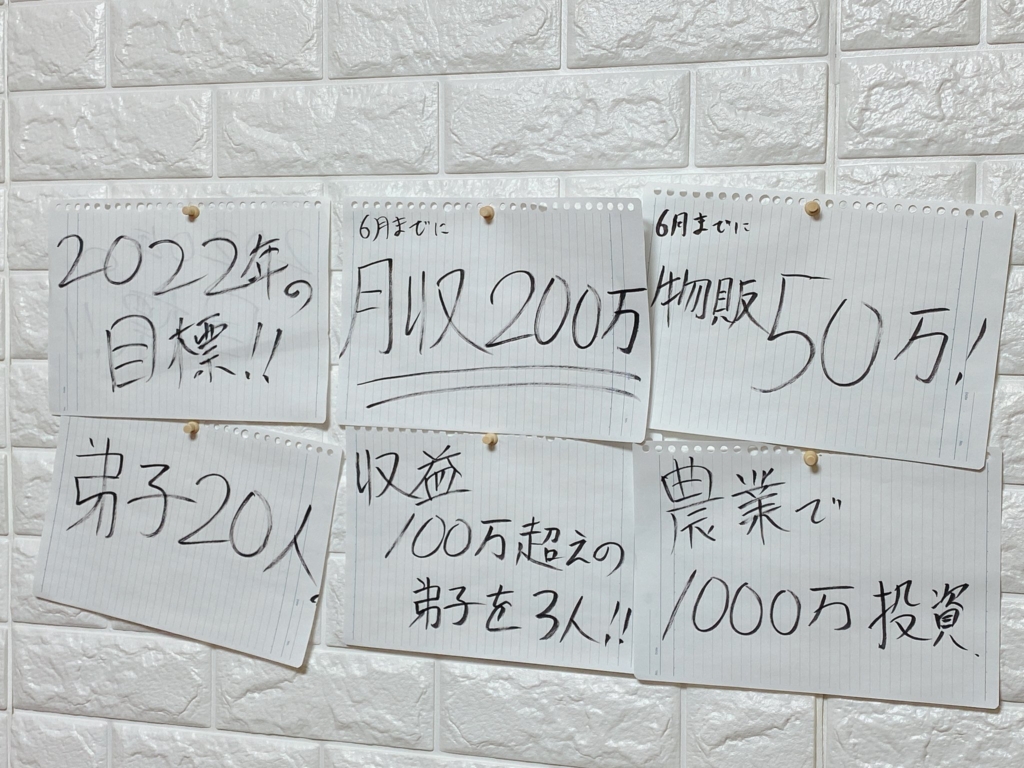 2022年の
目標!!
6月までに
月収200万
6月までに
物販50万!
弟子20人
収益
100万超えの
弟子を3人!!
農業で
1000万投資